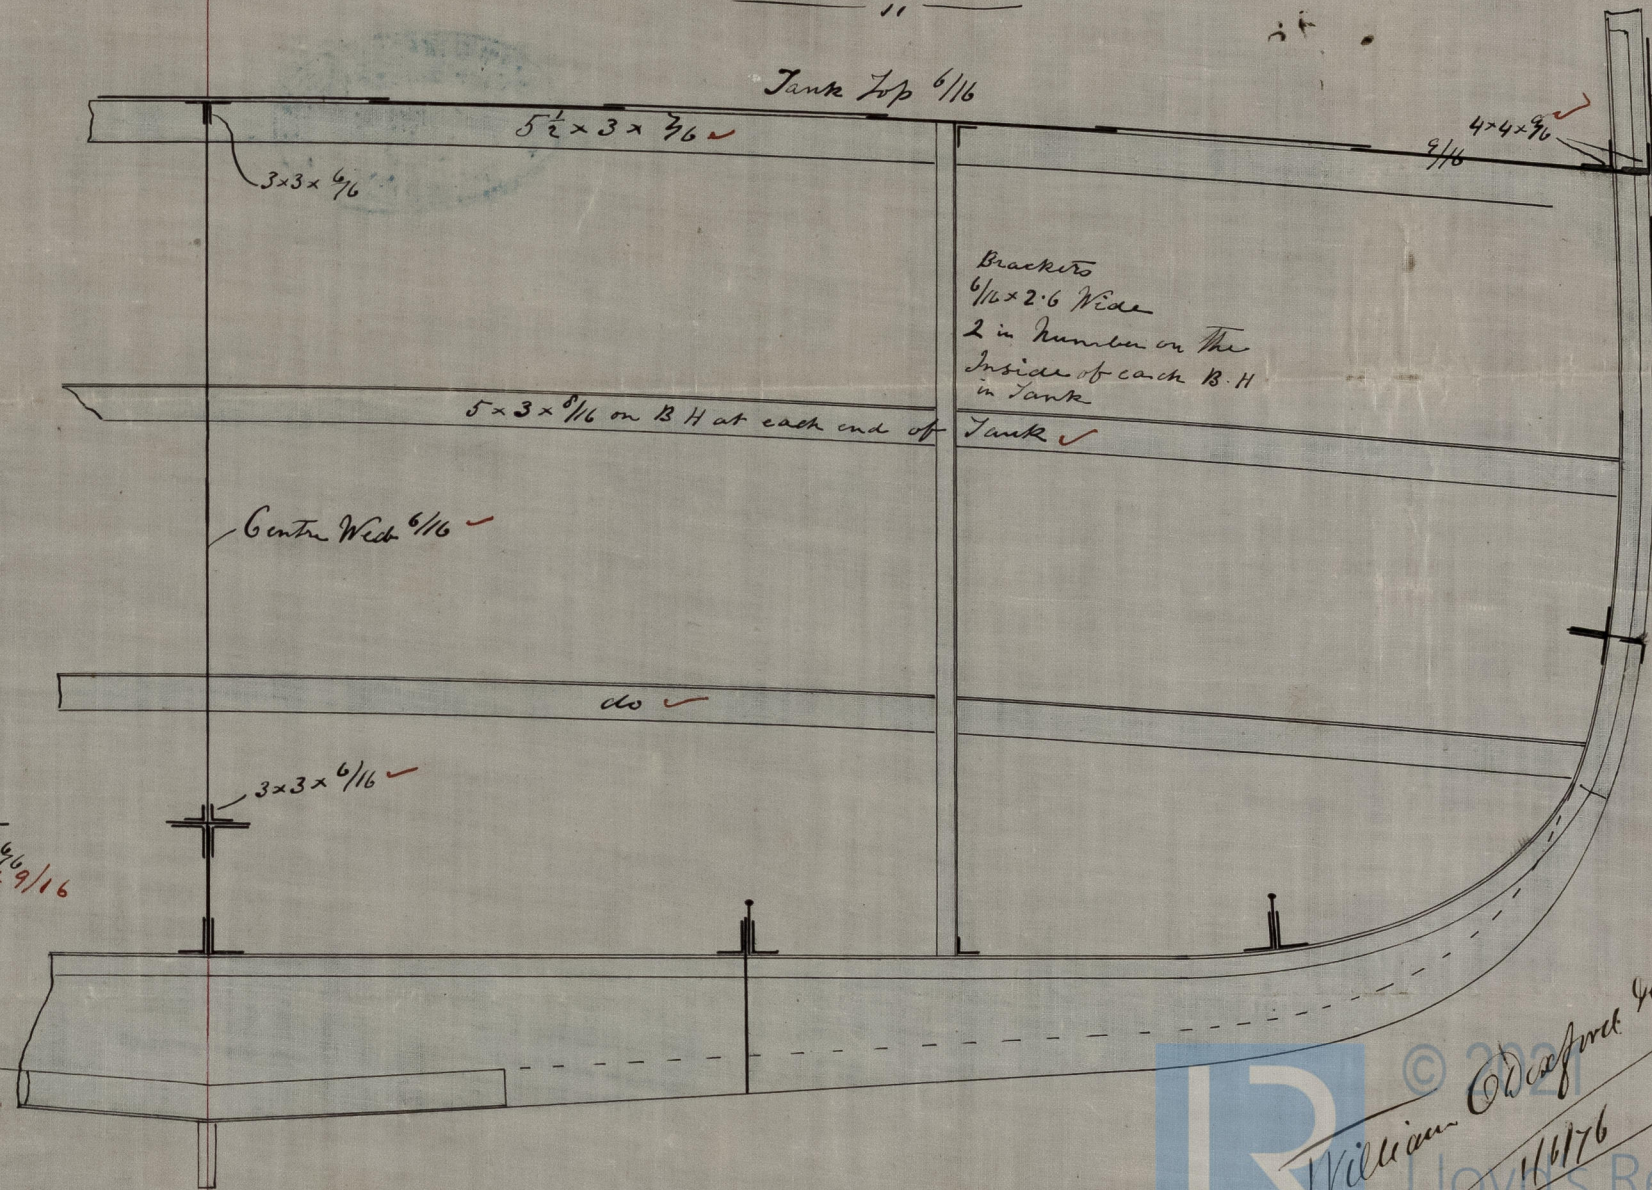 "
Tank Top 6/16
5 1/2 x 3 x 7/16
3x3x 6/16
4x4x 9/16
9/16
Brackets
6/16 x 2.6 Wide
2 in Number on The
Inside of each B.H
in Tank
5 x 3 x 8/16 on B H at each end of Tank
Centre Web 6/16
do
3x3x 6/16
9/16
William Doxford &
1/6/76
© 2021
LR
Lloyd's Re